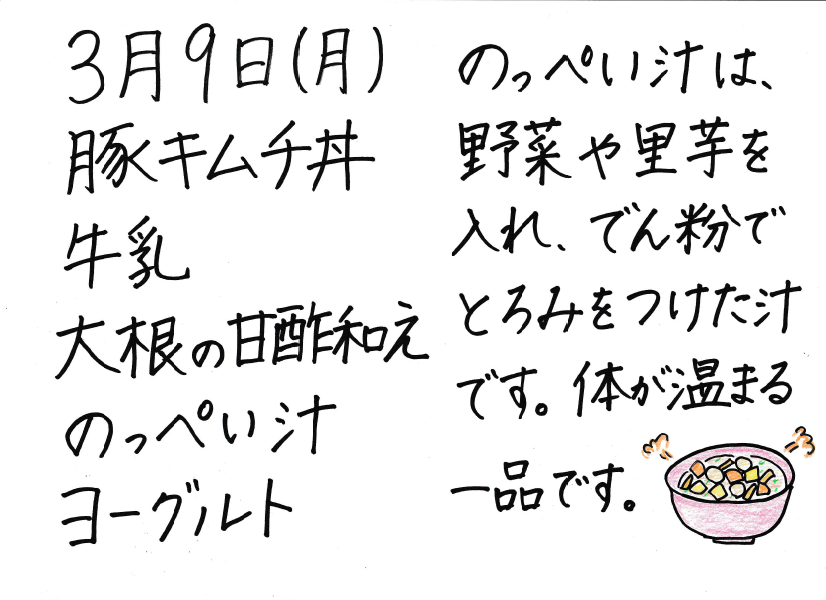 3月9日(月)
豚キムチ丼
牛乳
大根の甘酢和え
のっぺい汁
ヨーグルト
のっぺい汁は、
野菜や里芋を
入れ、でん粉で
とろみをつけた汁
です。体が温まる
一品です。